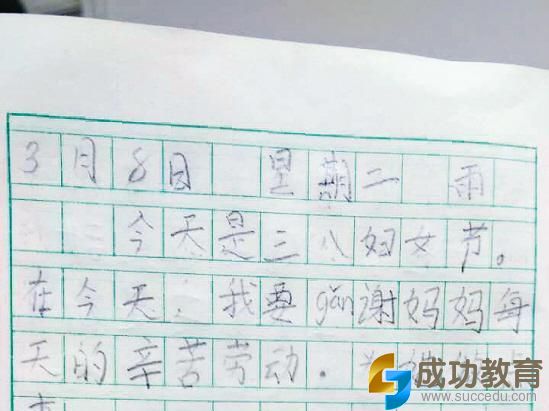 3月8日 星期二 雨
今天是三八妇女节。
在今天,我要gǎn谢妈妈每
天的辛苦劳动.
成功教育
www.succedu.com